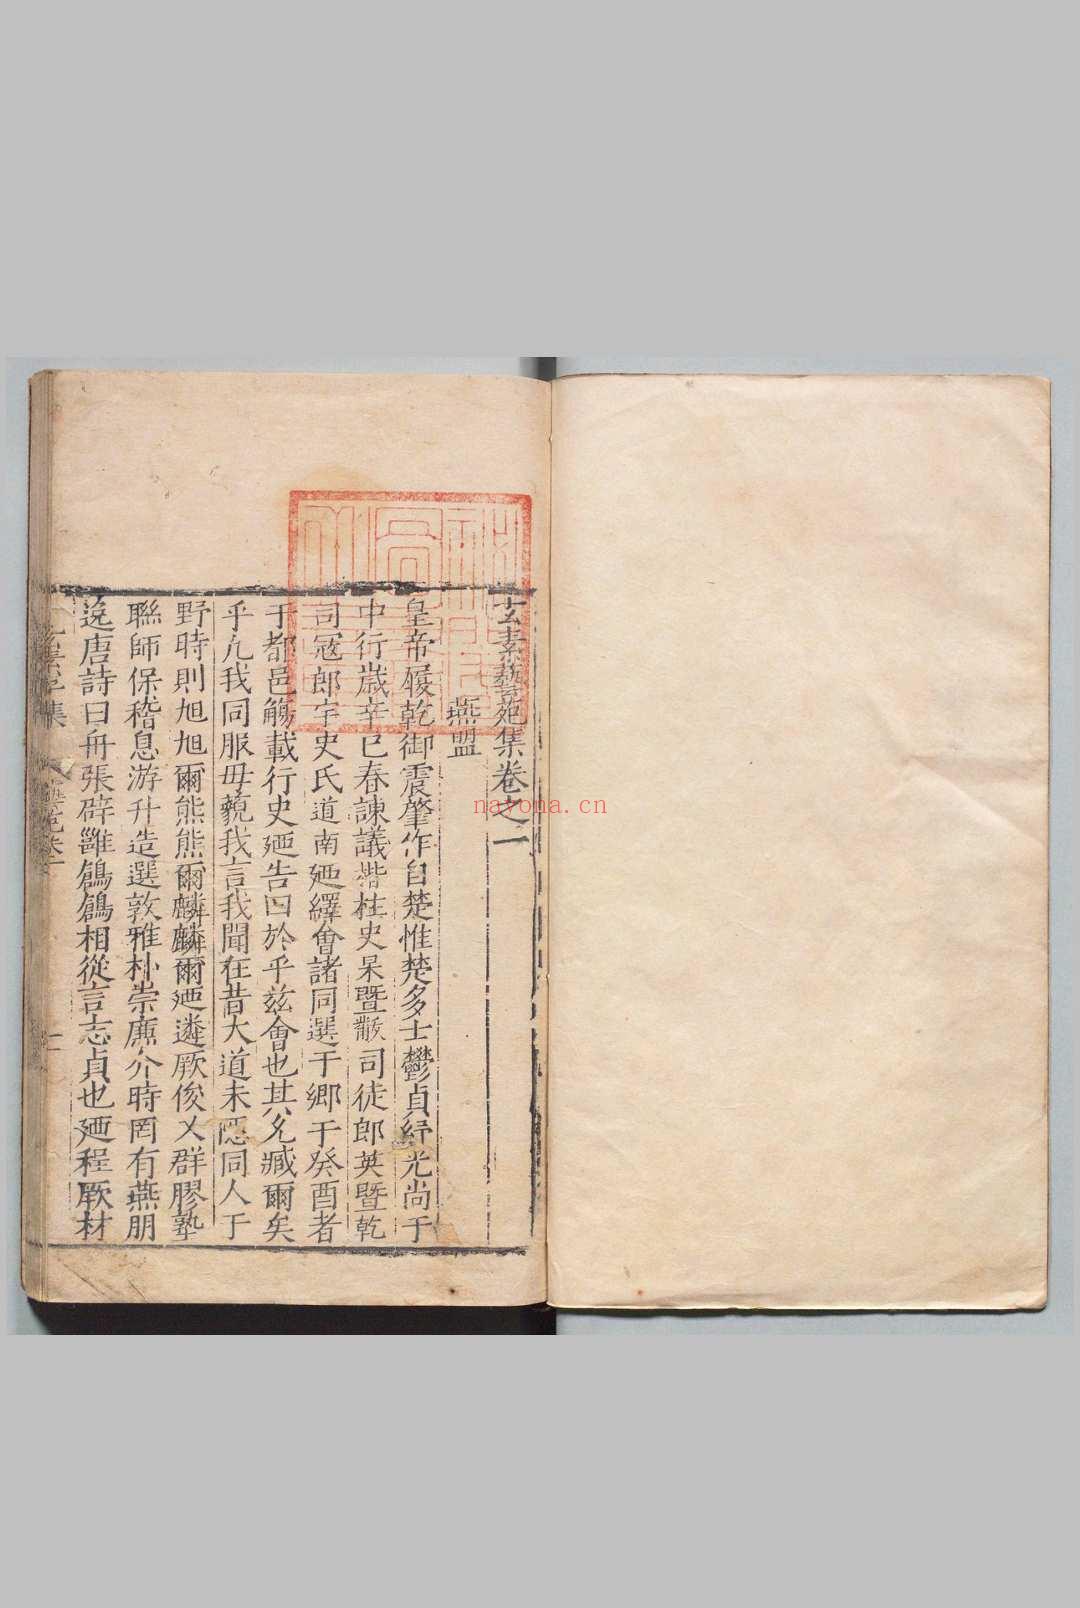 玄素藝苑集卷之一
燕盟
皇帝履乾御震肇作自楚惟楚多士鬱貞紓光尚于
中行歲辛巳春諫議楷柱史杲暨散司徒郎英暨乾
司寇郎宇史氏道南廼繹會諸同選于鄉于癸酉者
于都邑觴載行史廼告曰於乎兹會也其允臧爾矣
乎凢我同服毋藐我言我聞在昔大道未隱同人于
野時則旭旭爾熊熊爾麟麟爾廼遴厥俊乂群膠塾
聯師保稽息游升造選敦雅朴崇廉介時罔有燕朋
逸唐詩曰冊張辟雝鶬鶬相從言志貞也廼程厥材
nayona.cn